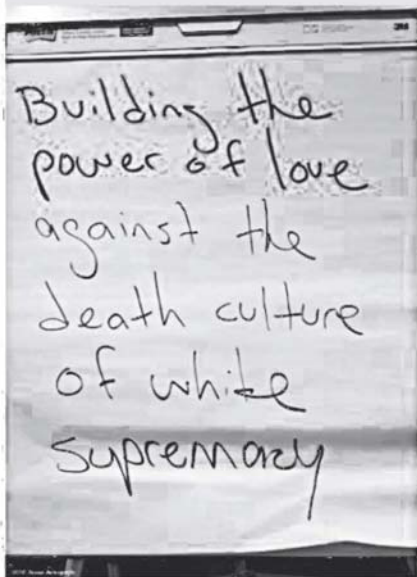 3M
Building the
power of love
against the
death culture
of white
supremacy